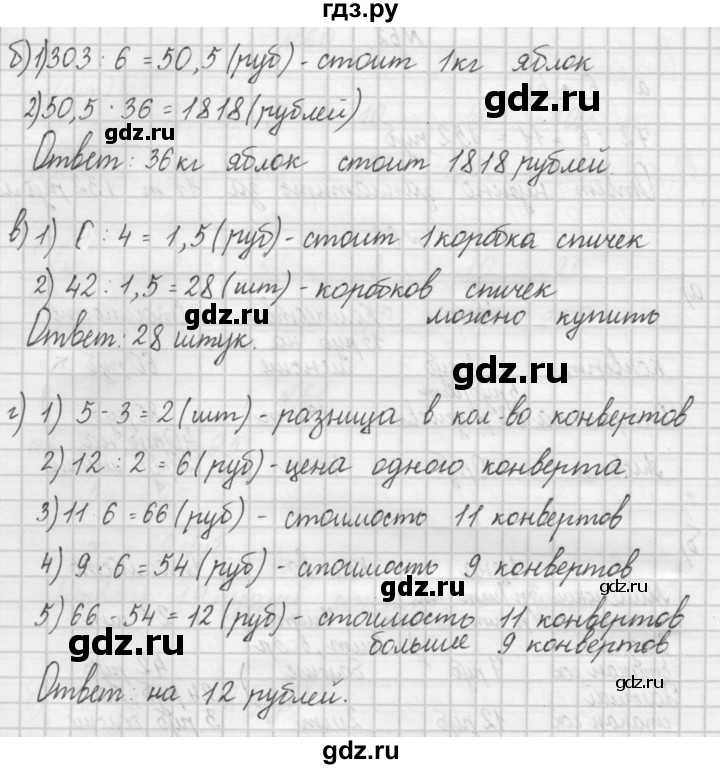 гдз.ру
б) 1) 303 : 6 = 50,5 (руб) - стоит 1 кг яблок
2) 50,5 · 36 = 1818 (рублей)
gdz.ru
gdz.ru
Ответ: 36 кг яблок стоит 1818 рублей.
в) 1) 6 : 4 = 1,5 (руб) - стоит 1 коробка спичек
2) 42 : 1,5 = 28 (шт) - коробков спичек
можно купить
gdz.ru
Ответ: 28 штук.
gdz.ru
г) 1) 5 - 3 = 2 (шт) - разница в кол-во конвертов
2) 12 : 2 = 6 (руб) - цена одного конверта.
3) 11 · 6 = 66 (руб) - стоимость 11 конвертов
4) 9 · 6 = 54 (руб) - стоимость 9 конвертов
gdz.ru
gdz.ru
5) 66 - 54 = 12 (руб) - стоимость 11 конвертов
больше 9 конвертов
gdz.ru
gdz.ru
Ответ: на 12 рублей.
gdz.ru